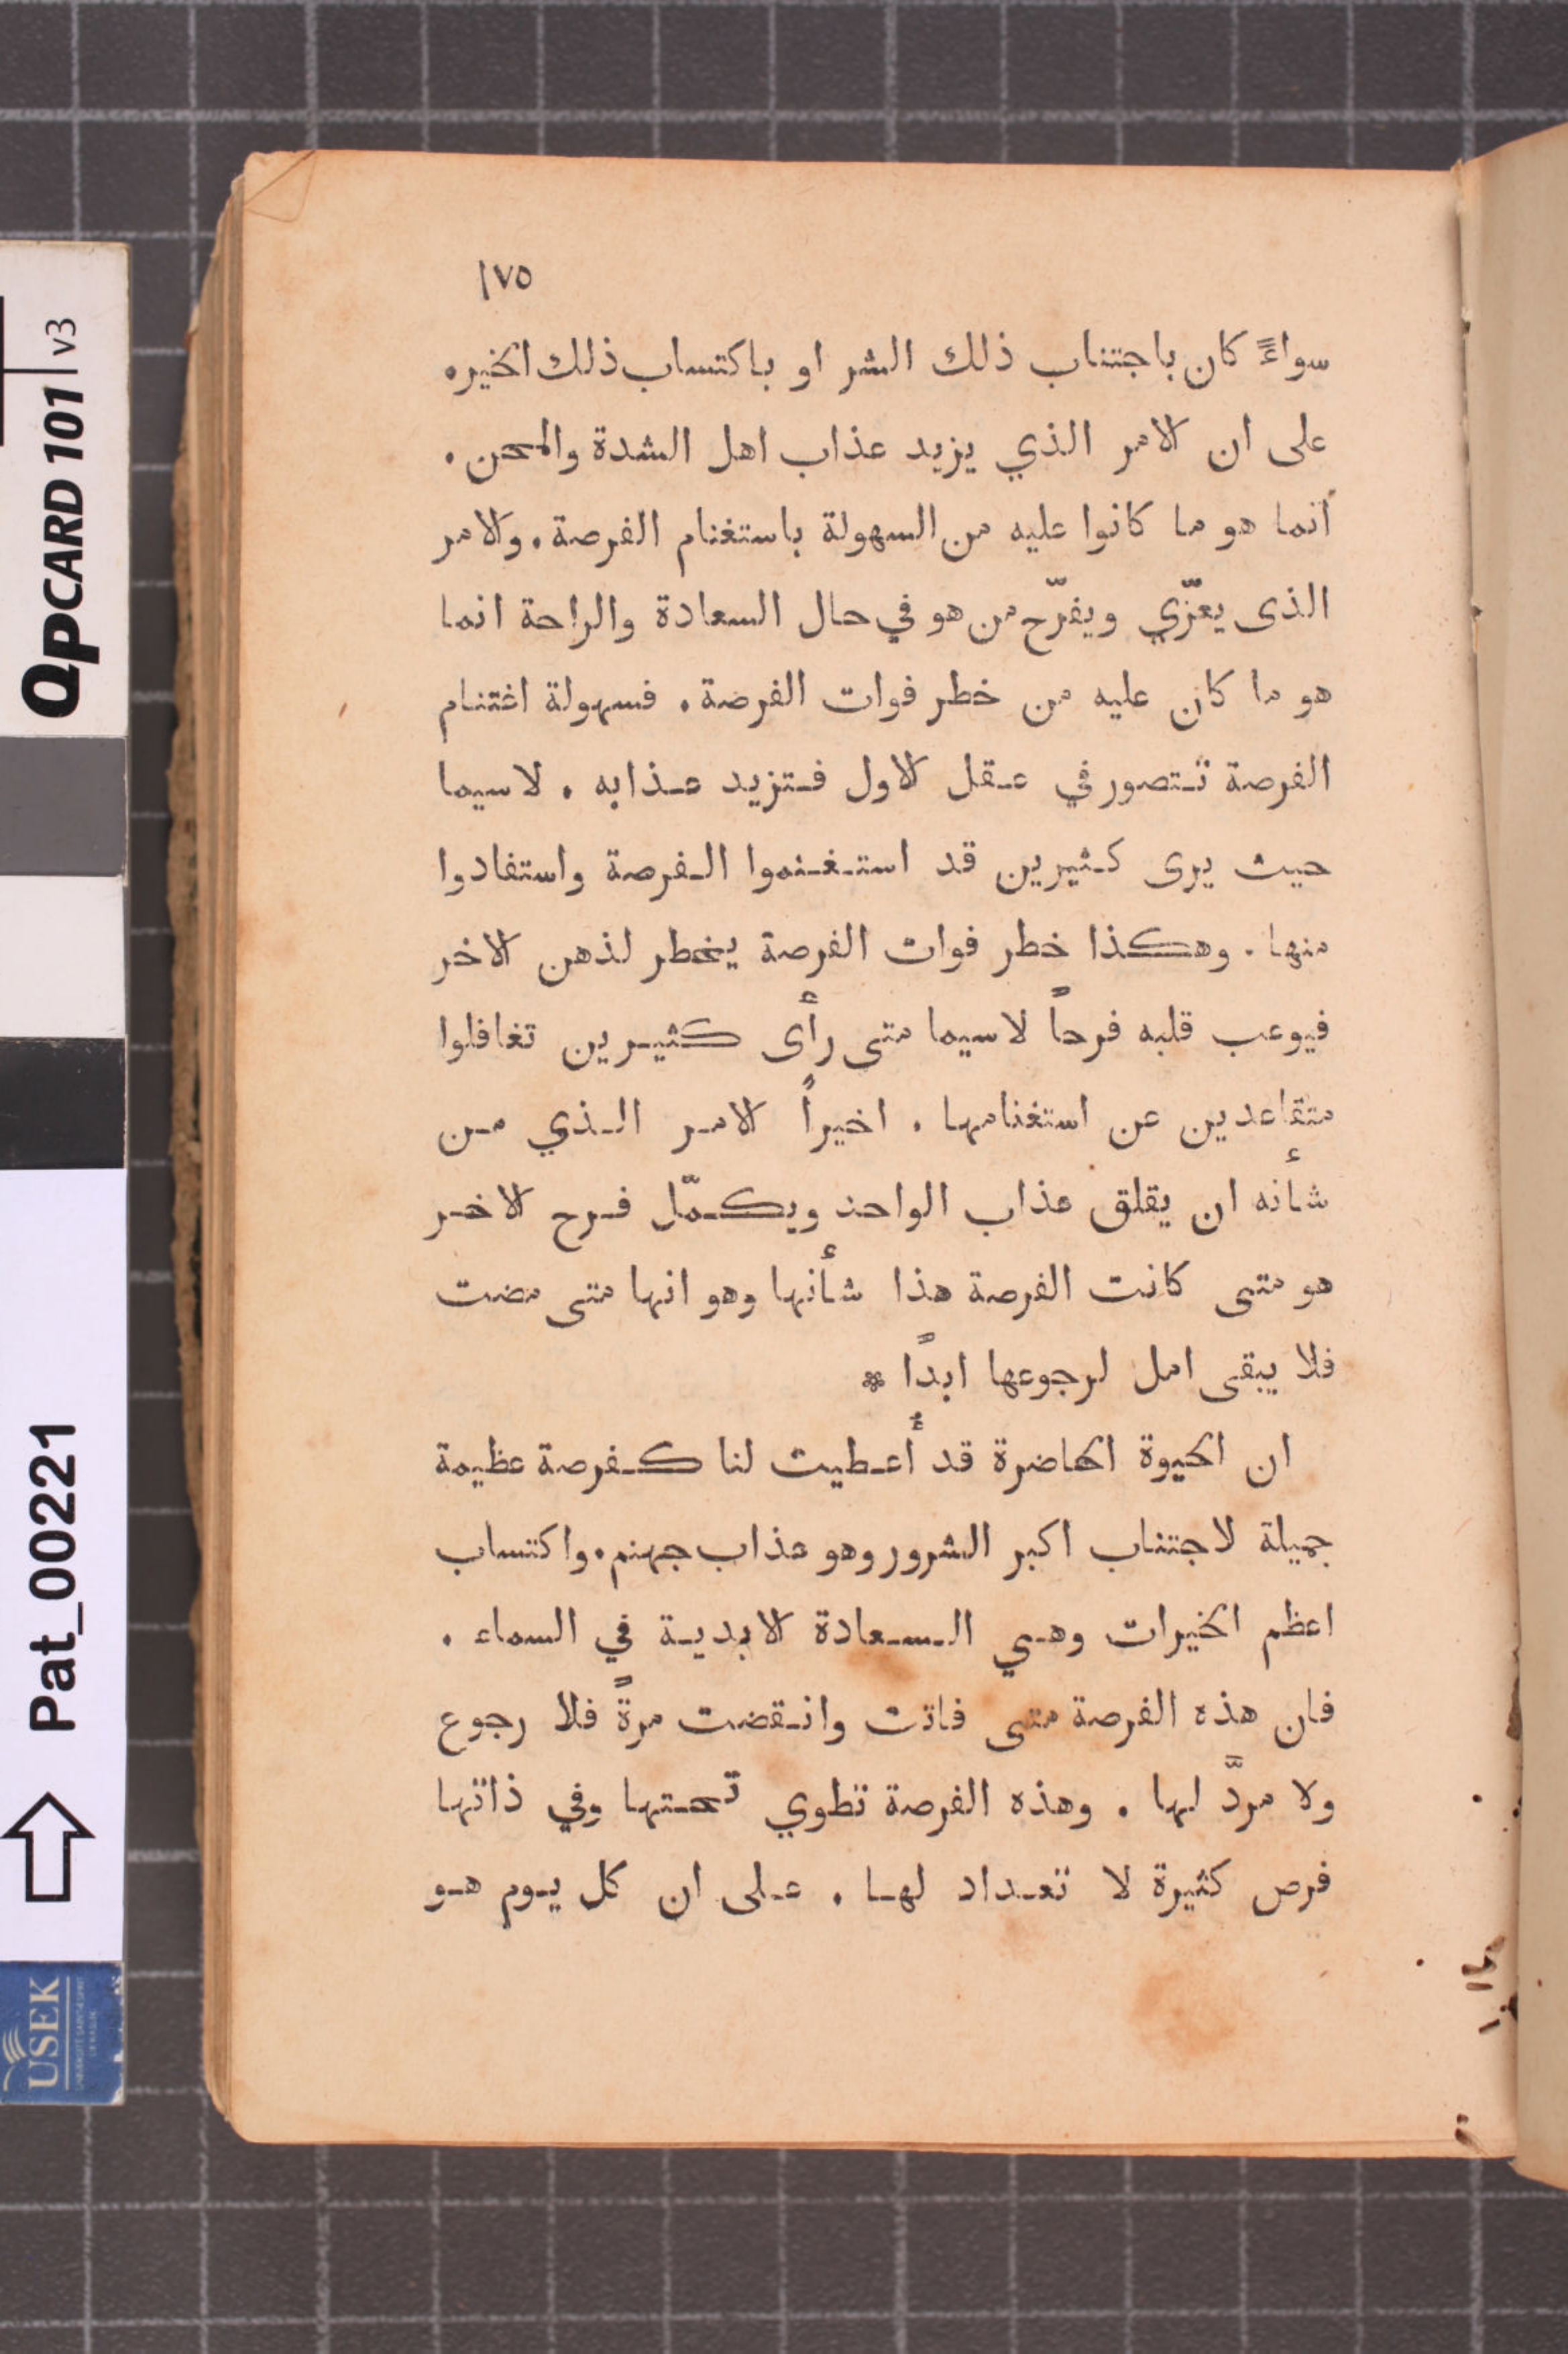 ١٧٥
سواءً كان باجتناب ذلك الشر او باكتساب ذلك الخير.
على ان الامر الذي يزيد عذاب اهل الشدة والمحن.
أنما هو ما كانوا عليه من السهولة باستغنام الفرصة. والامر
الذى يعزّي ويفرّح من هو في حال السعادة والراحة انما
هو ما كان عليه من خطر فوات الفرصة. فسهولة اغتنام
الفرصة تتصور في عقل الاول فتزيد عذابه. لاسيما
حيث يرى كثيرين قد استغنموا الفرصة واستفادوا
منها. وهكذا خطر فوات الفرصة يخطر لذهن الاخر
فيوعب قلبه فرحاً لاسيما متى رأى كثيرين تغافلوا
متقاعدين عن استغنامها. اخيراً الامر الذي من
شأنه ان يقلق عذاب الواحد ويكمّل فرح الاخر
هو متى كانت الفرصة هذا شأنها وهو انها متى مضت
فلا يبقى امل لرجوعها ابداً *
ان الحيوة الحاضرة قد أعطيت لنا كفرصة عظيمة
جميلة لاجتناب اكبر الشرور وهو عذاب جهنم. واكتساب
اعظم الخيرات وهي السعادة الابدية في السماء.
فان هذه الفرصة متى فاتت وانقضت مرةً فلا رجوع
ولا مردّ لها. وهذه الفرصة تطوي تحتها وفي ذاتها
فرص كثيرة لا تعداد لها. على ان كل يوم هو
QPCARD 101 v3
Pat_00221
USEK